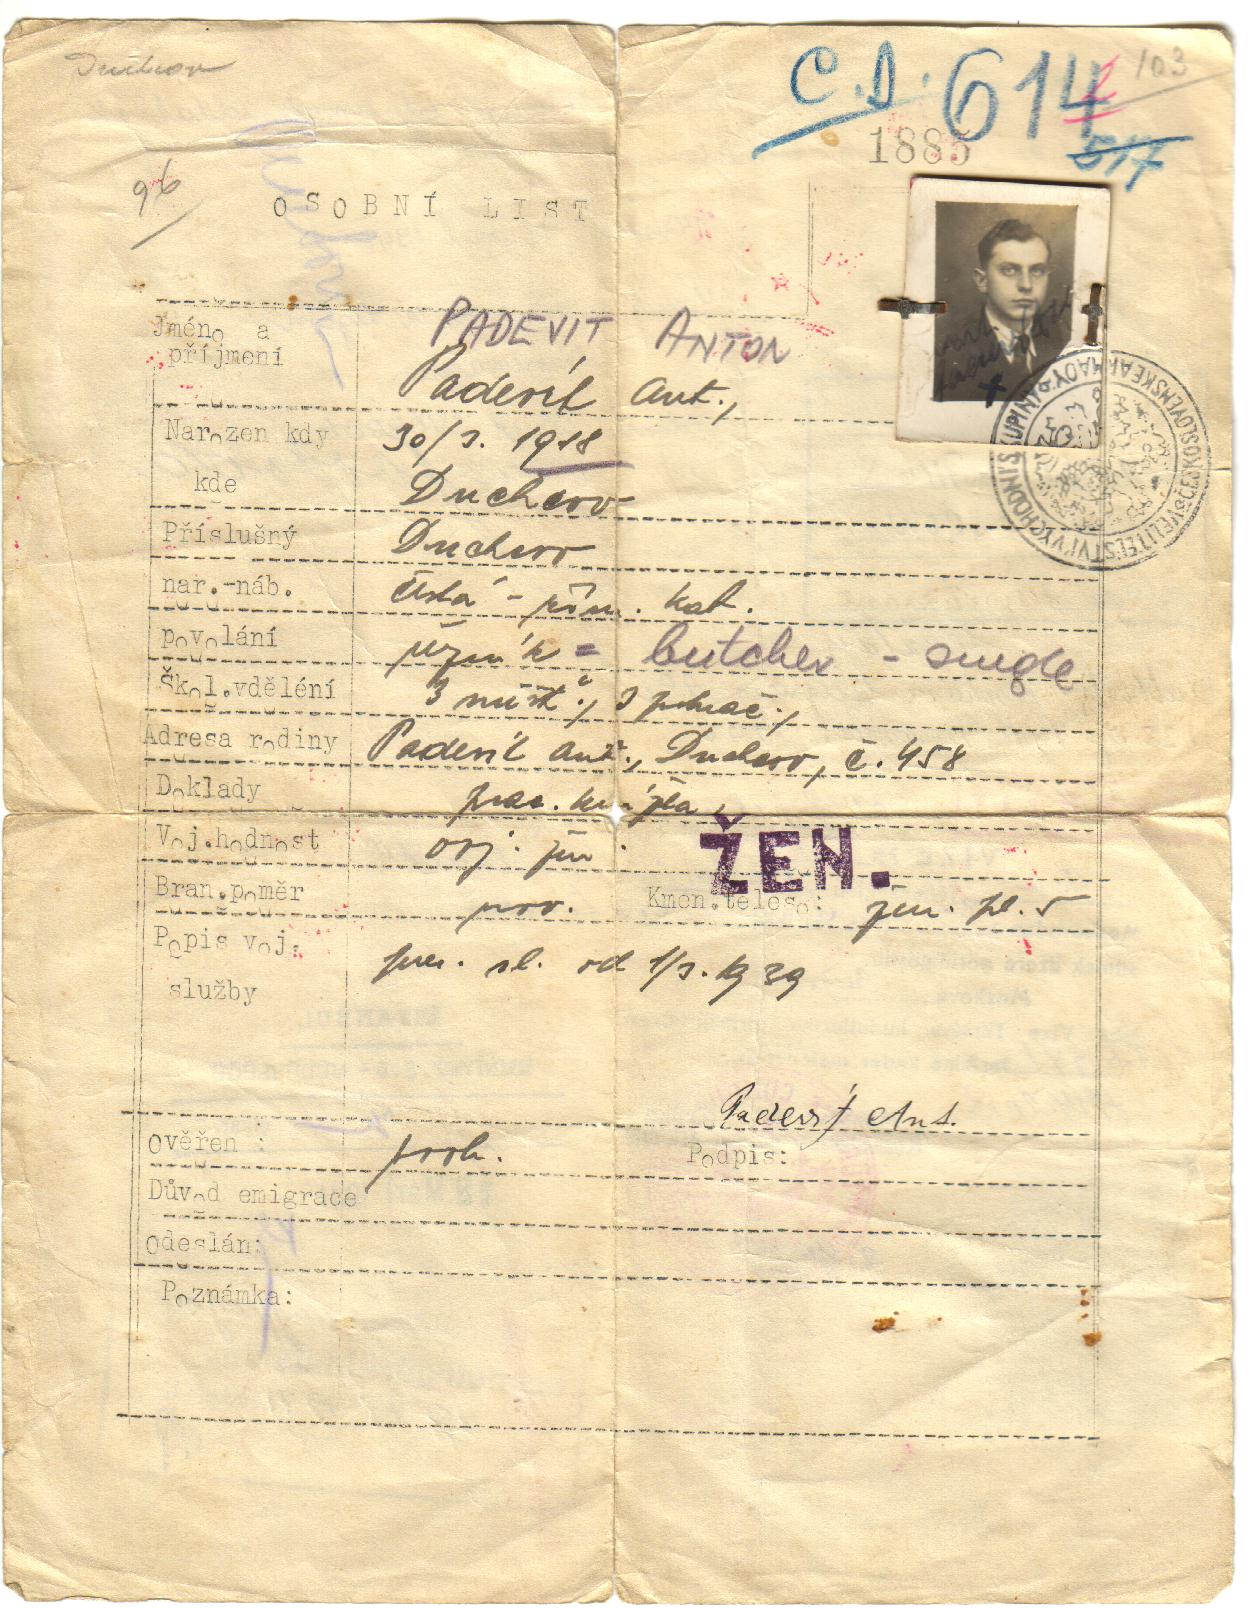 Duchcov
C.D. 614
103
1885
517
96
OSOBNÍ LIST
Jméno a příjmení
PADEVIT ANTON
Padevít Ant.,
Narozen kdy 30/3. 1918
kde Duchcov
Příslušný Duchcov
nar.-náb. česká - řím. kat.
povolání řezník = butcher - single
Škol.vdělení 3 měšť., 3 pokrač.,
Adresa rodiny Padevít Ant., Duchcov, č. 458
Doklady prac. knížka,
Voj.hodnost voj. žen.
ŽEN.
Bran.poměr prov. Kmen.teleso: žen. pl. 5
Popis voj. služby
pres. sl. od 1/3. 1939
Padevít Ant.
ověřen :
Podpis:
Důvod emigrace
odeslán:
Poznámka:
VELITELSTVÍ VÝCHODNÍ SKUPINY ČESKOSLOVENSKÉ ARMÁDY